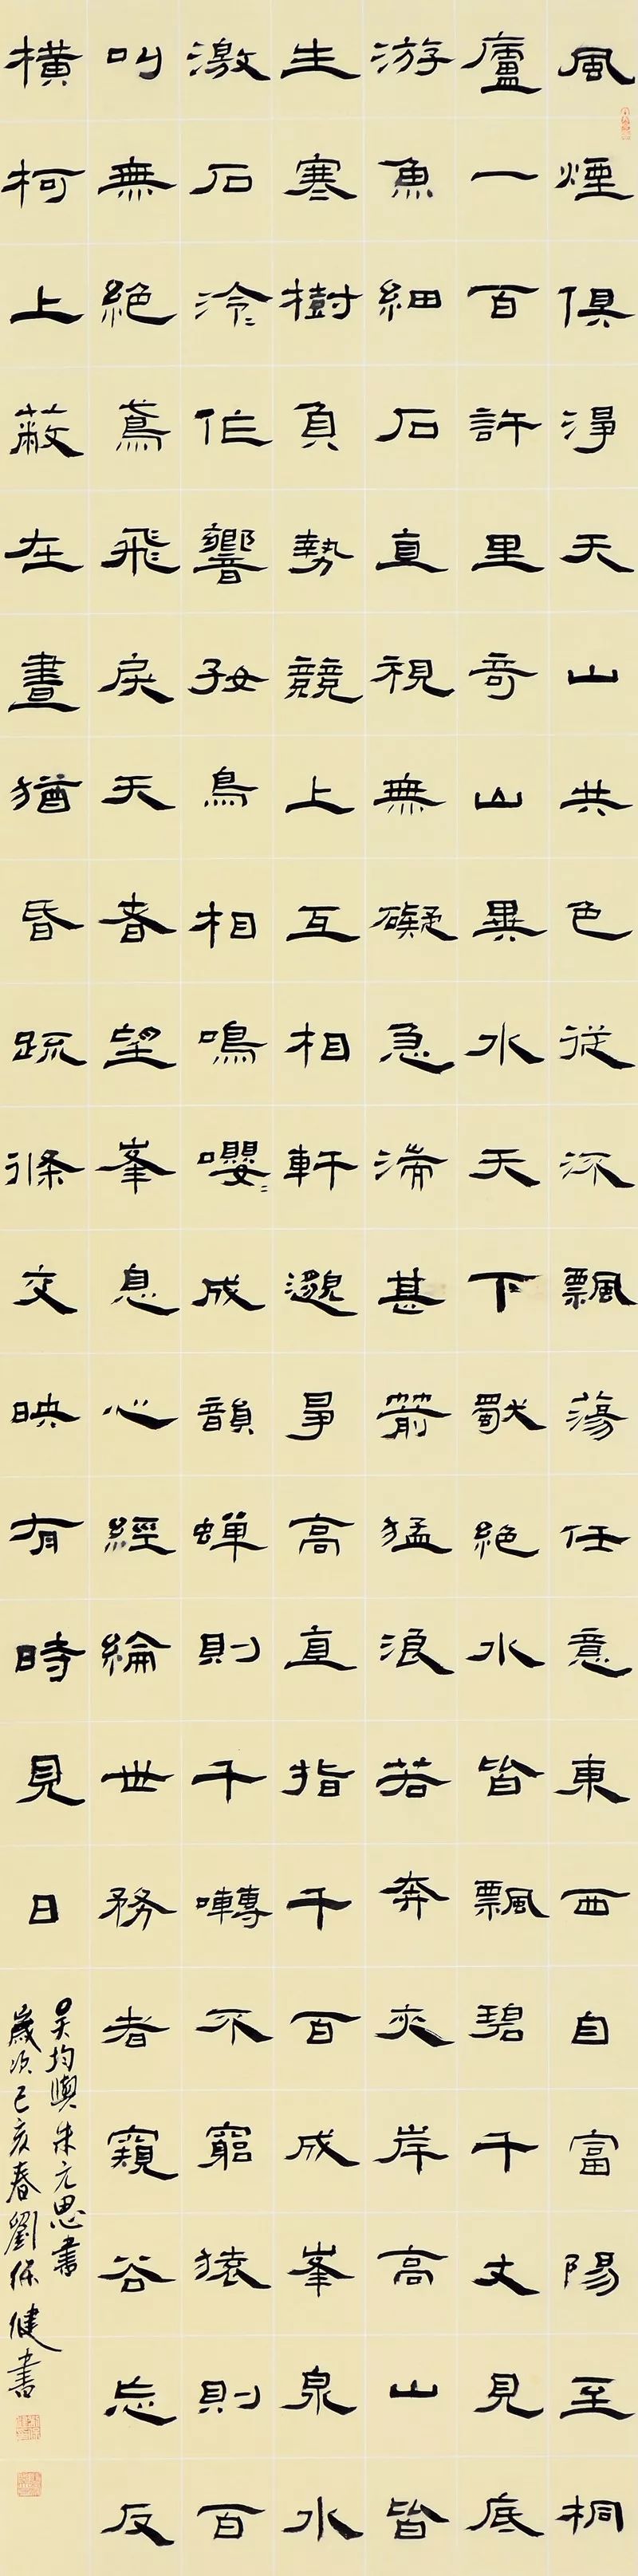 風煙俱淨天山共色從流飄蕩任意東西自富陽至桐
廬一百許里奇山異水天下獨絕水皆飄碧千丈見底
游魚細石直視無礙急湍甚箭猛浪若奔夾岸高山皆
生寒樹負勢競上互相軒邈爭高直指千百成峯泉水
激石泠〻作響好鳥相鳴嚶〻成韻蟬則千囀不窮猿則百
叫無絕鳶飛戾天者望峯息心經綸世務者窺谷忘反
橫柯上蔽在晝猶昏疏條交映有時見日
吳均與朱元思書
歲次己亥春劉保健書